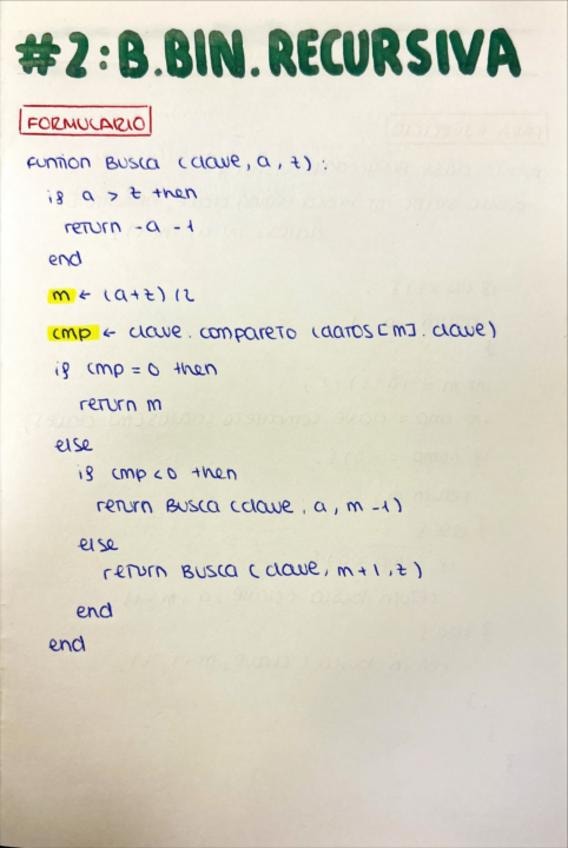 #2: B.BIN. RECURSIVA
FORMULARIO
funtion BUSCA (clave, a, z):
if a > z then
return -a -1
end
m ← (a+z) /2
cmp ← clave. compareTo (datos [m]. clave)
if cmp = 0 then
return m
else
if cmp < 0 then
return BUSCA (clave, a, m -1)
else
return BUSCA (clave, m+1, z)
end
end